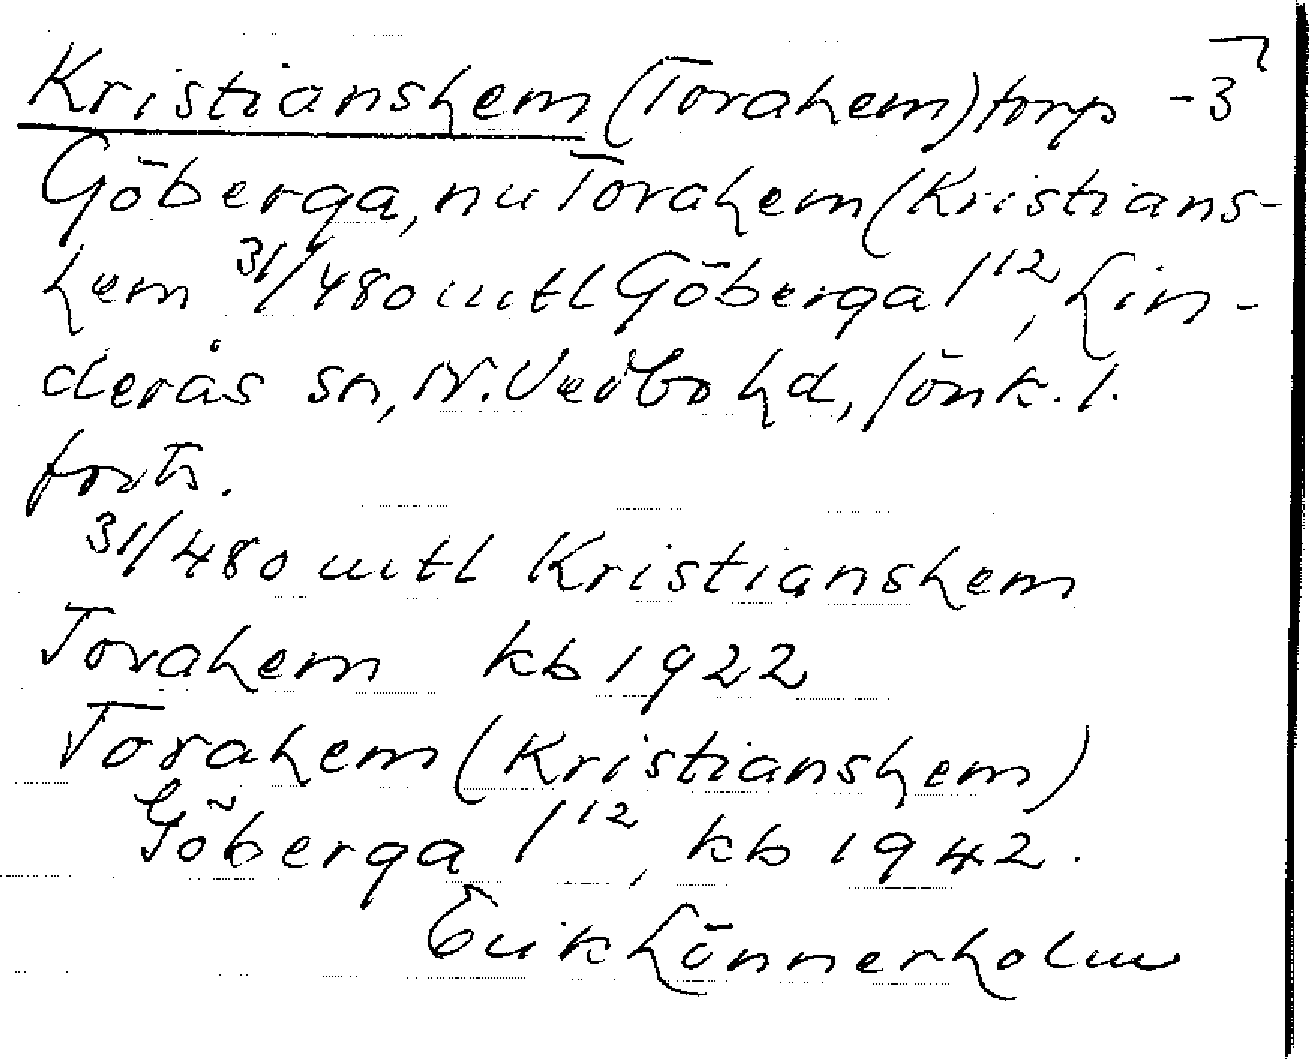 Kristianshem (Torahem) torp -3
Göberga, nu Torahem (Kristians-
hem 31/480 mtl Göberga 1¹², Lin-
derås sn, N. Vedbo hd, Jönk. l.
forts.
31/480 mtl Kristianshem
Torahem kb 1922
Torahem (Kristianshem)
Göberga 1¹², kb 1942.
Erik Lönnerholm